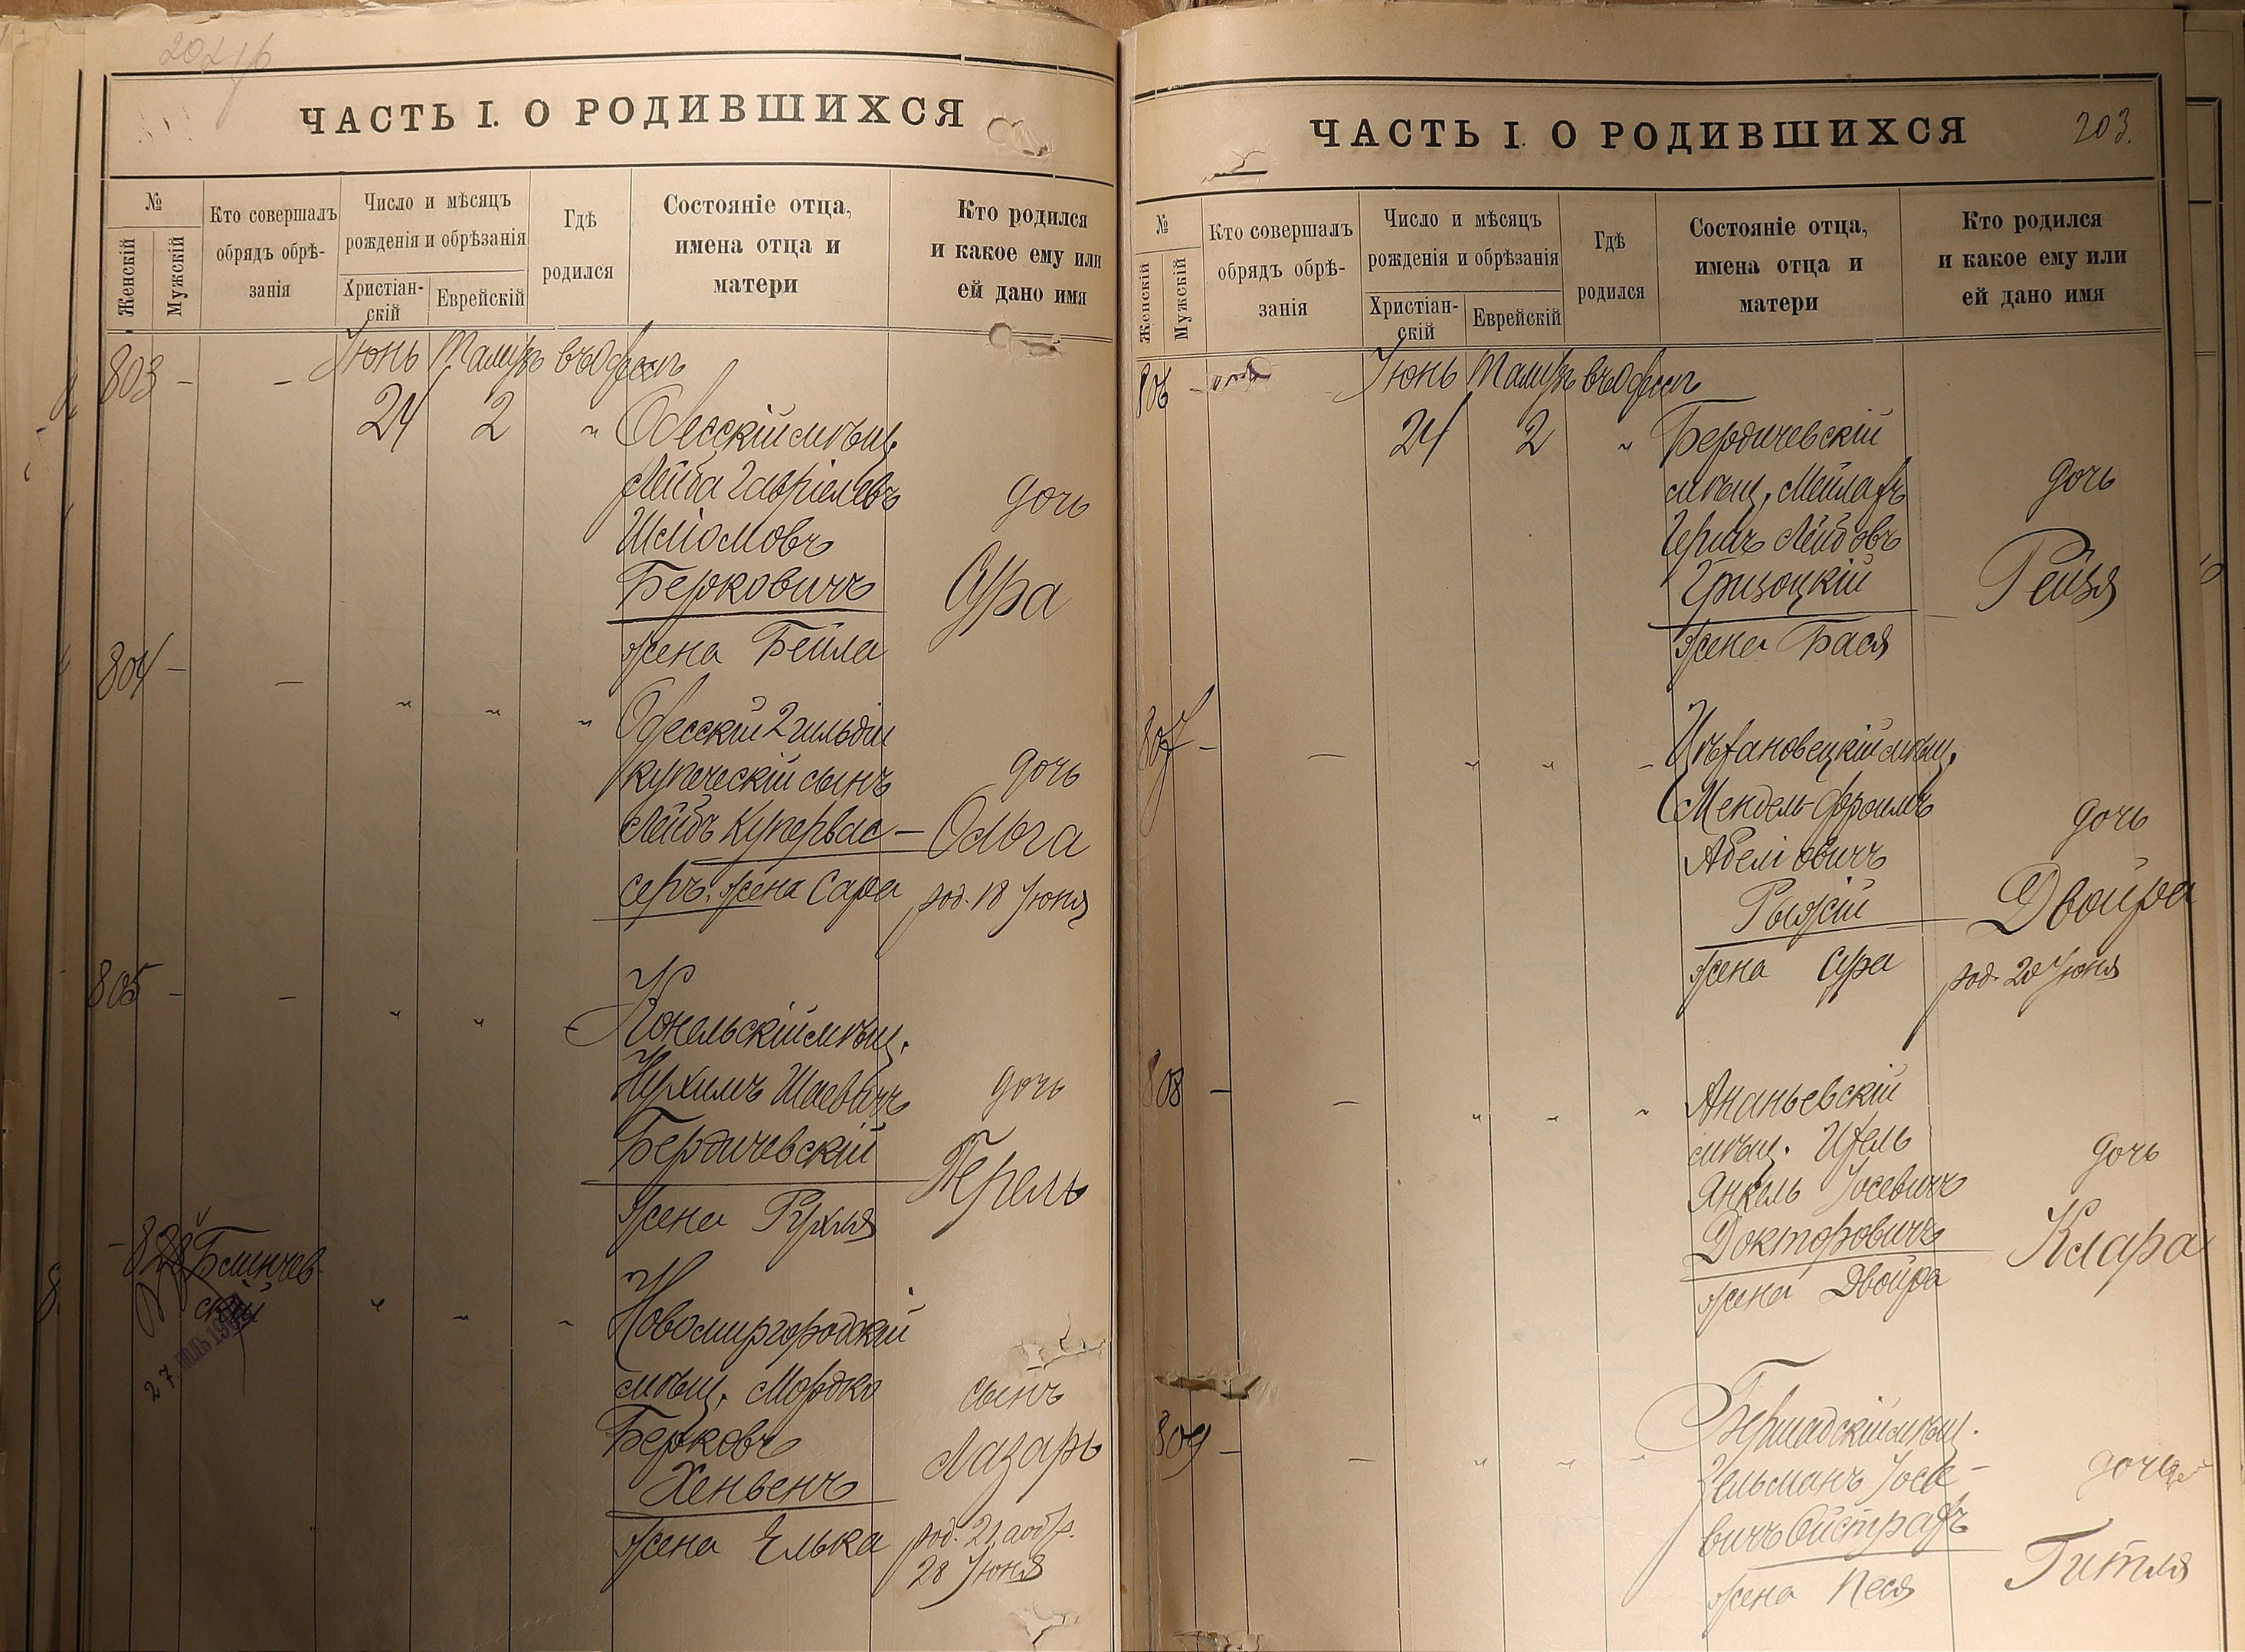 ЧАСТЬ I. О РОДИВШИХСЯ
№
Женскій
Мужскій
Кто совершалъ
обрядъ обрѣ-
занія
Число и мѣсяцъ
рожденія и обрѣзанія
Христіан-
скій
Еврейскій
Гдѣ
родился
Состояніе отца,
имена отца и
матери
Кто родился
и какое ему или
ей дано имя
803 - - Іюнь Тамузъ въ Одессѣ
24 2 " Одесскій мѣщ.
Лейба Гавріелевъ
дочь
Шліомовъ
Берковичъ
Сура
жена Бейла
804 - - " " " Одесскій 2 гильдіи
купеческій сынъ
дочь
Лейбъ Купервас-
Ольга
серъ, жена Сара
род. 18 Іюня
805 - - " " " Конельскій мѣщ.
Нухимъ Шаевичъ
дочь
Бердичевскій
Перель
жена Рухля
- 828 Блинчев-
скій
27 ІЮЛЬ
" " " Новомиргородскій
мѣщ. Мордко
сынъ
Берковъ
Лазарь
Хеньенъ
жена Елька
род. 21, а обр.
28 Іюня
ЧАСТЬ I. О РОДИВШИХСЯ
203.
№
Женскій
Мужскій
Кто совершалъ
обрядъ обрѣ-
занія
Число и мѣсяцъ
рожденія и обрѣзанія
Христіан-
скій
Еврейскій
Гдѣ
родился
Состояніе отца,
имена отца и
матери
Кто родился
и какое ему или
ей дано имя
806 - Іюнь Тамузъ въ Одессѣ
24 2 " Бердичевскій
мѣщ. Мейлахъ
дочь
Гершъ Лейбовъ
Рейзя
жена Бася
807 - - " " "
мѣщ.
Мендель-Фроимъ
дочь
Абеліовичъ
Рыжій
Двойра
жена Сура
род. 20 Іюня
808 - - " " " Ананьевскій
мѣщ. Ицель
дочь
Янкель Іосевичъ
Докторовичъ
Клара
жена Двойра
809 - - " " " Бершадскій мѣщ.
Зельманъ Іосе-
дочь
вичъ Ойстрахъ
Гитля
жена Песя